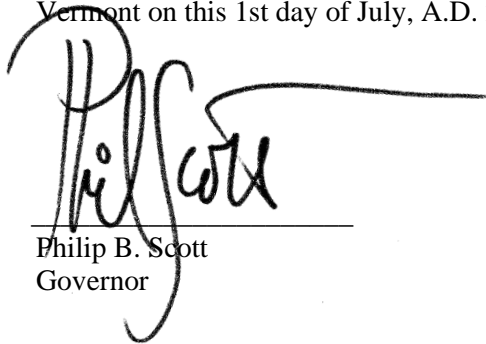 Vermont on this 1st day of July, A.D.
Phil Scott
Philip B. Scott
Governor